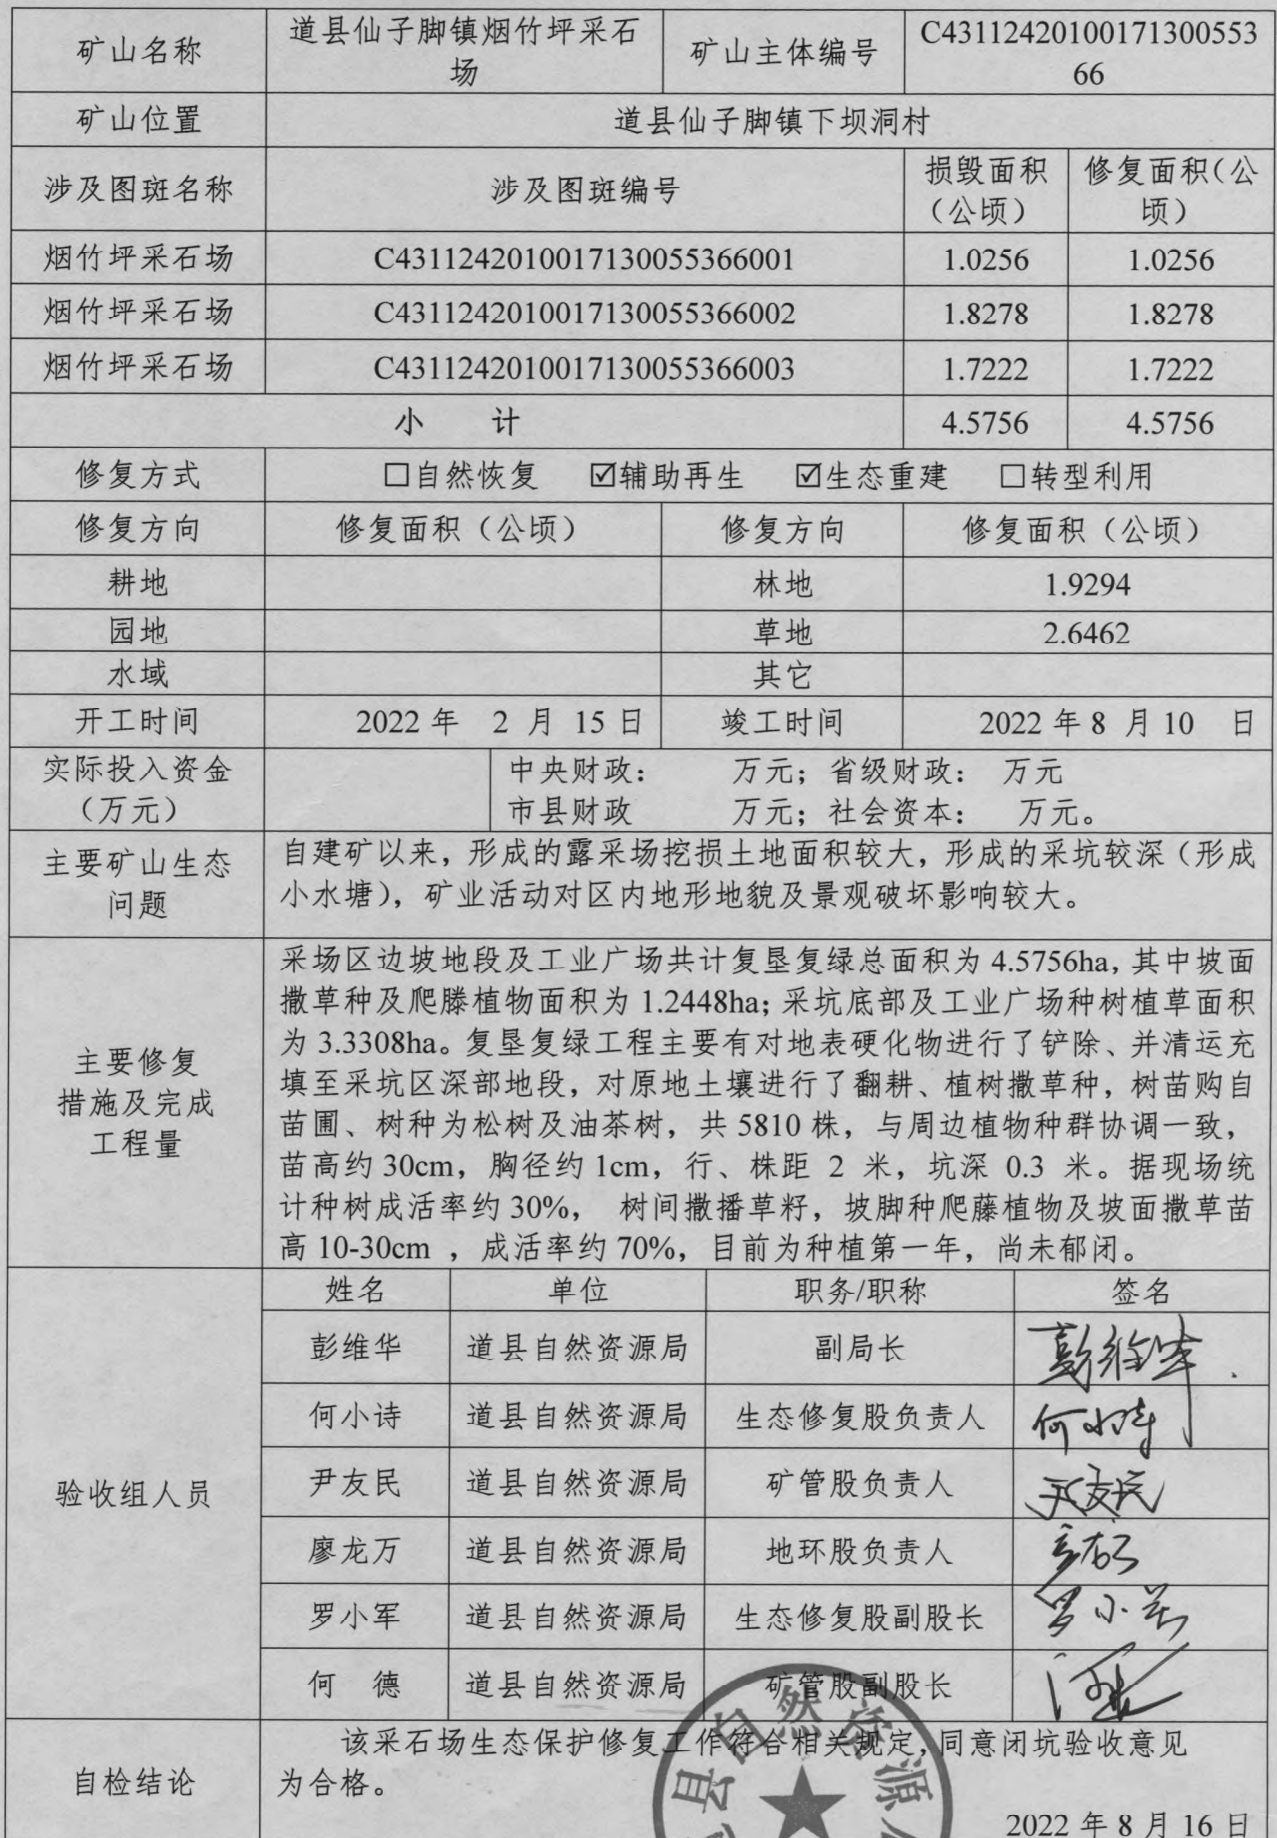 矿山名称 道县仙子脚镇烟竹坪采石 矿山主体编号 C43112420100171300553
场 66
矿山位置 道县仙子脚镇下坝洞村
涉及图斑名称 涉及图斑编号 损毁面积 修复面积(公
(公顷) 顷)
烟竹坪采石场 C4311242010017130055366001 1.0256 1.0256
烟竹坪采石场 C4311242010017130055366002 1.8278 1.8278
烟竹坪采石场 C4311242010017130055366003 1.7222 1.7222
小 计 4.5756 4.5756
修复方式 □自然恢复 ☑辅助再生 ☑生态重建 □转型利用
修复方向 修复面积（公顷） 修复方向 修复面积（公顷）
耕地 林地 1.9294
园地 草地 2.6462
水域 其它
开工时间 2022 年 2 月 15 日 竣工时间 2022 年 8 月 10 日
实际投入资金 中央财政： 万元；省级财政： 万元
（万元） 市县财政 万元；社会资本： 万元。
主要矿山生态 自建矿以来，形成的露采场挖损土地面积较大，形成的采坑较深（形成
问题 小水塘），矿业活动对区内地形地貌及景观破坏影响较大。
采场区边坡地段及工业广场共计复垦复绿总面积为 4.5756ha，其中坡面
撒草种及爬滕植物面积为 1.2448ha；采坑底部及工业广场种树植草面积
为 3.3308ha。复垦复绿工程主要有对地表硬化物进行了铲除、并清运充
主要修复 填至采坑区深部地段，对原地土壤进行了翻耕、植树撒草种，树苗购自
措施及完成 苗圃、树种为松树及油茶树，共 5810 株，与周边植物种群协调一致，
工程量 苗高约 30cm，胸径约 1cm，行、株距 2 米，坑深 0.3 米。据现场统
计种树成活率约 30%， 树间撒播草籽，坡脚种爬藤植物及坡面撒草苗
高 10-30cm ，成活率约 70%，目前为种植第一年，尚未郁闭。
验收组人员 姓名 单位 职务/职称 签名
彭维华 道县自然资源局 副局长 彭维华
何小诗 道县自然资源局 生态修复股负责人 何小诗
尹友民 道县自然资源局 矿管股负责人 尹友民
廖龙万 道县自然资源局 地环股负责人
罗小军 道县自然资源局 生态修复股副股长 罗小军
何 德 道县自然资源局 矿管股副股长
自检结论 该采石场生态保护修复工作符合相关规定，同意闭坑验收意见
为合格。
县自然资源
2022 年 8 月 16 日